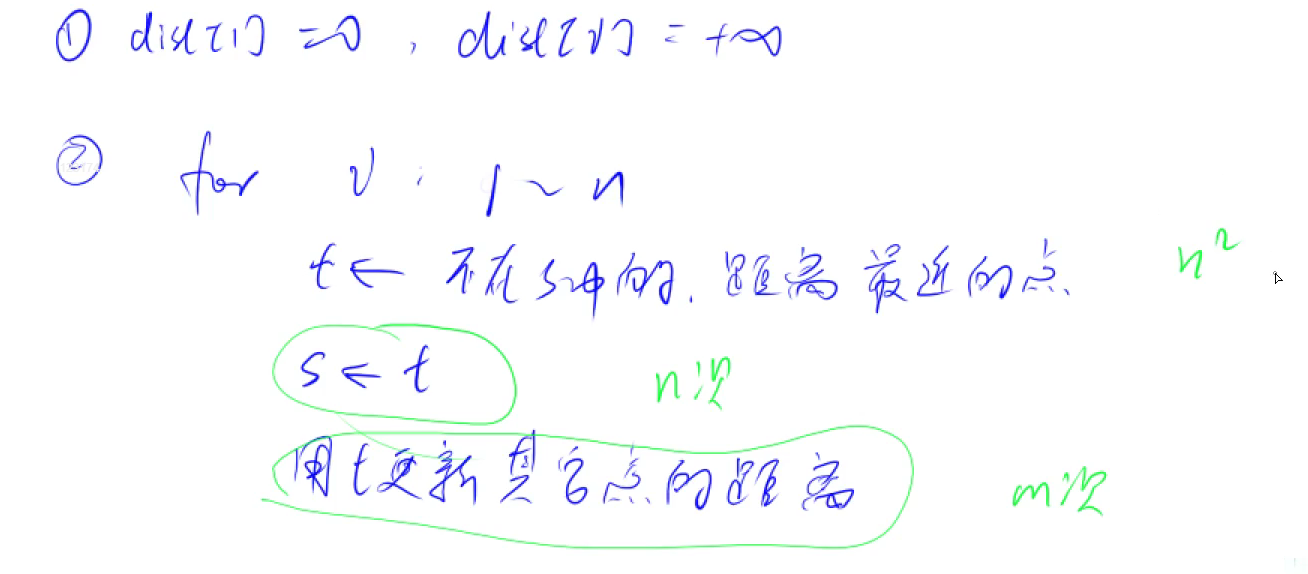 ① dist[1] = 0, dist[v] = +∞
② for v: 1 ~ n
t ← 不在s中的, 距离最近的点 n²
s ← t n次
用t更新其它点的距离 m次